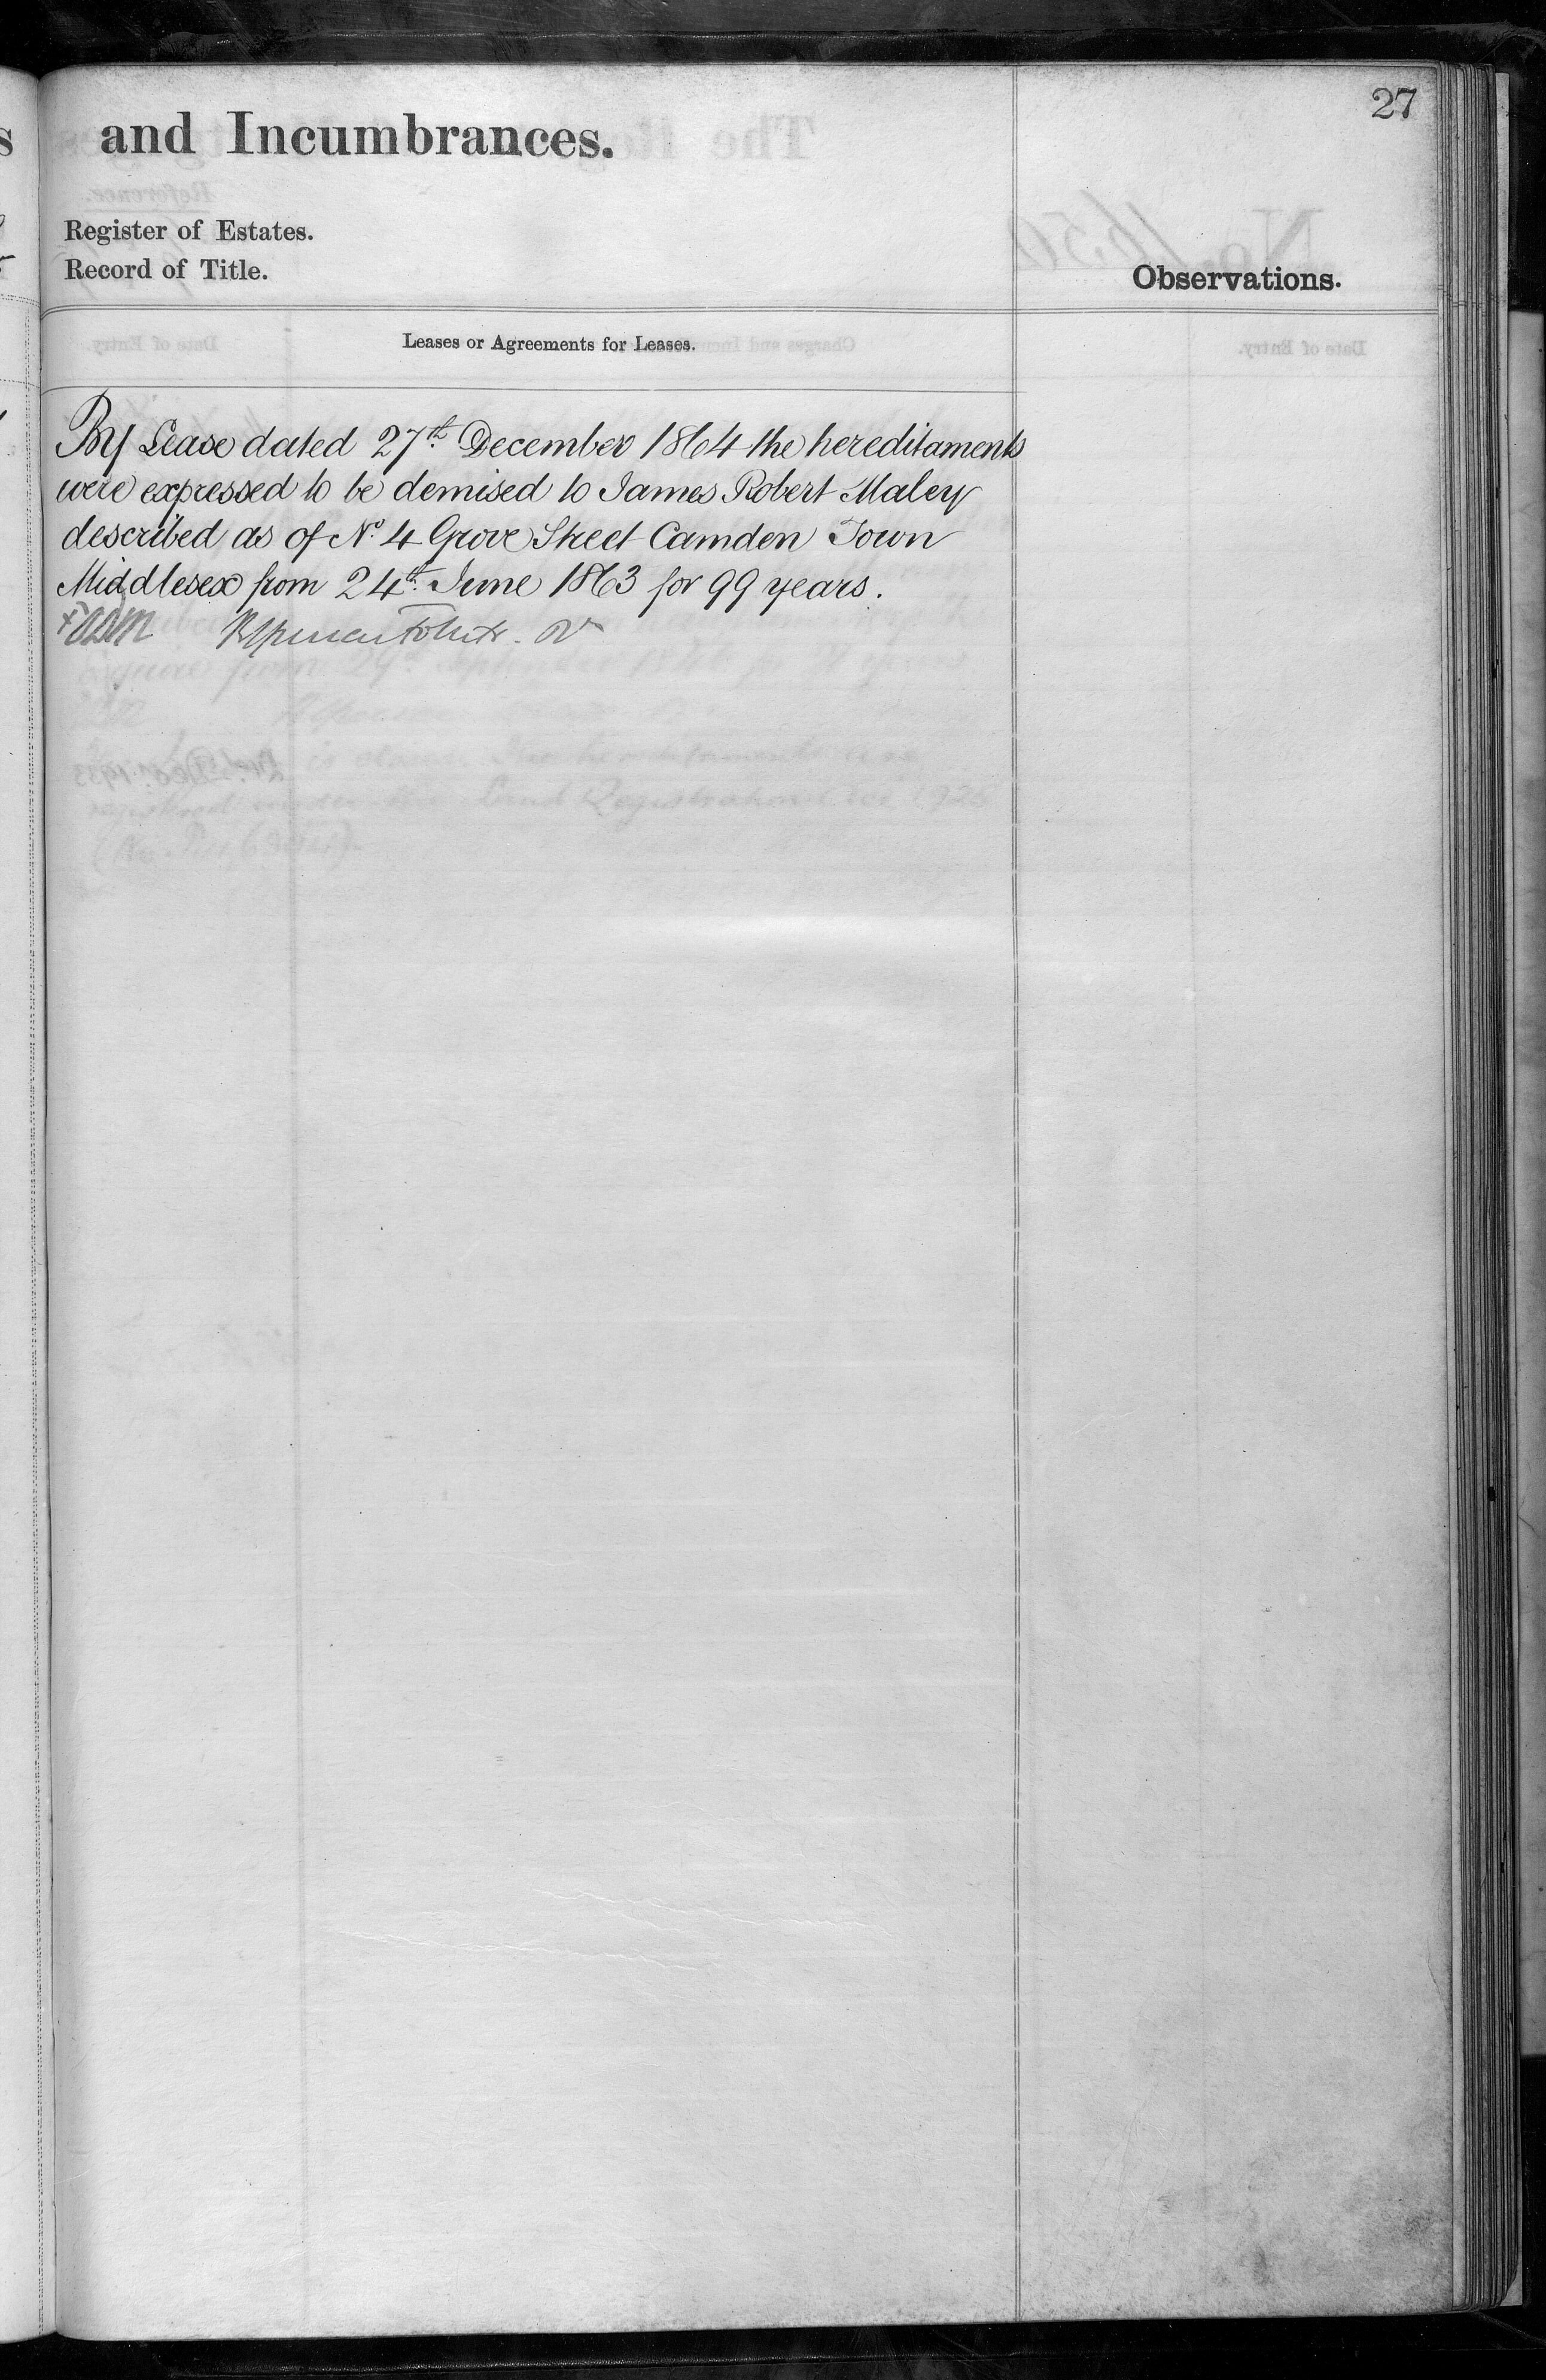 27
and Incumbrances.
Register of Estates.
Record of Title.
Observations.
Leases or Agreements for Leases.
By Lease dated 27th December 1864 the hereditaments
were expressed to be demised to James Robert Maley
described as of No. 4 Grove Street Camden Town
Middlesex from 24th June 1863 for 99 years.